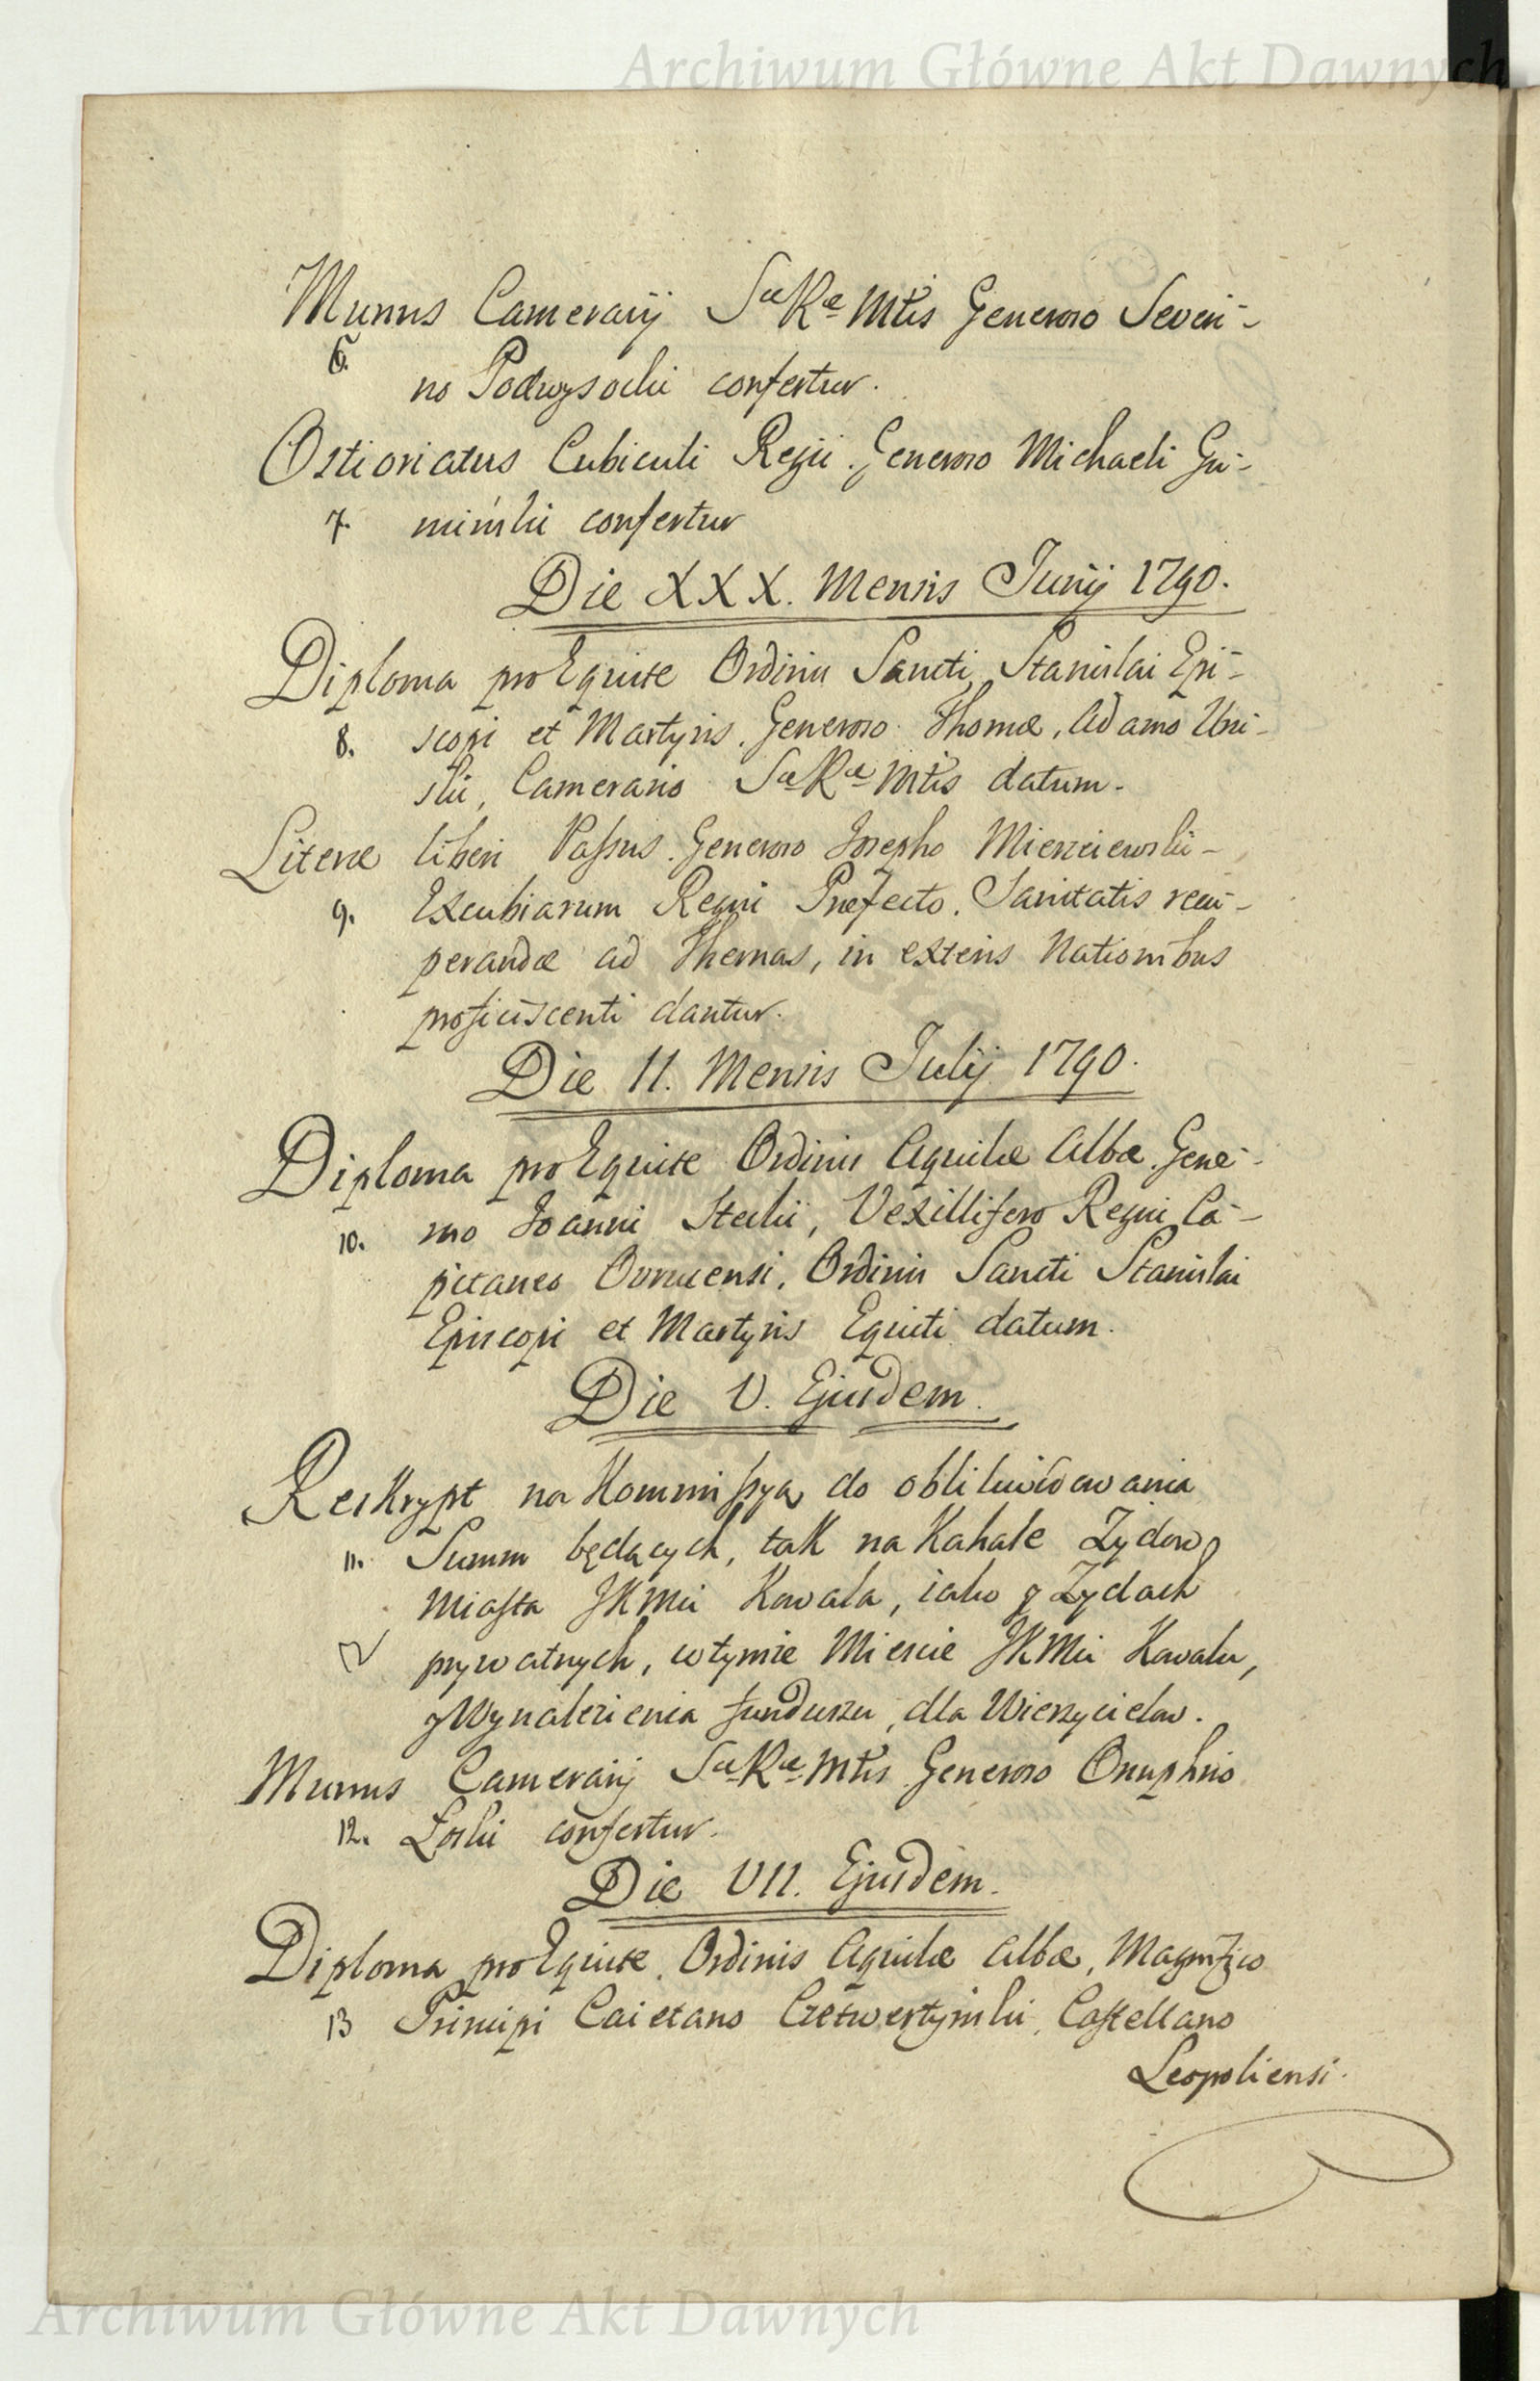 Archiwum Główne Akt Dawnych
Munus Camerarij Sæ Ræ Mtis Generoso Severi-
6. no Podwysocki confertur.
Ostioriatus Cubiculi Regii. Generoso Michaeli Gu-
7. minski confertur
Die XXX. Mensis Junij 1790.
Diploma pro Equite Ordinis Sancti Stanislai Epi-
8. scopi et Martyris. Generoso Thomæ, Adamo Uni-
ski, Camerario Sæ Ræ Mtis datum.
Literæ liberi Passus. Generoso Josepho Mierzeiewski-
9. Excubiarum Regni Præfecto. Sanitatis recu-
perandæ ad Thermas, in exteris Nationibus
proficiscenti dantur.
Die II. Mensis Julij 1790.
Diploma pro Equite Ordinis Aquilæ Albæ. Gene-
10. roso Joanni Stecki, Vexillifero Regni Ca-
pitaneo Ovrucensi. Ordinis Sancti Stanislai
Episcopi et Martyris Equiti datum.
Die V. Ejusdem.
Reskrypt na Kommissyą do oblikwidowania
11. Summ będących, tak na Kahale Zydow
Miasta JKMci Kowala, iako y Zydach
prywatnych, w tymże Miescie JKMci Kowalu,
y Wynalezienia funduszu, dla Wierzycielow.
Munus Camerarij Sæ Ræ Mtis Generoso Onuphrio
12. Loski confertur.
Die VII. Ejusdem.
Diploma pro Equite Ordinis Aquilæ Albæ, Magnifico
13 Principi Caietano Czetwertynski, Castellano
Leopoliensi.
Archiwum Główne Akt Dawnych